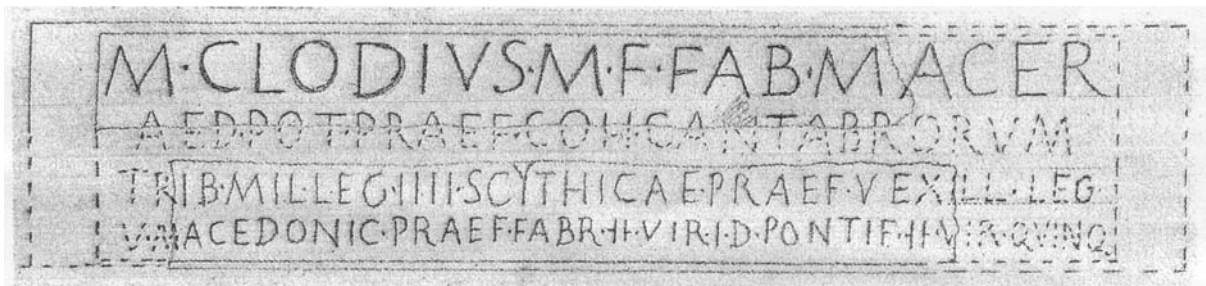 M·CLODIVS·M·F·FAB·MACER
AED·POT·PRAEF·COH·CANTABRORVM
TRIB·MIL·LEG·IIII·SCYTHICAE·PRAEF·VEXILL·LEG
V·MACEDONIC·PRAEF·FABR·II·VIR·I·D·PONTIF·II·VIR·QVINQ